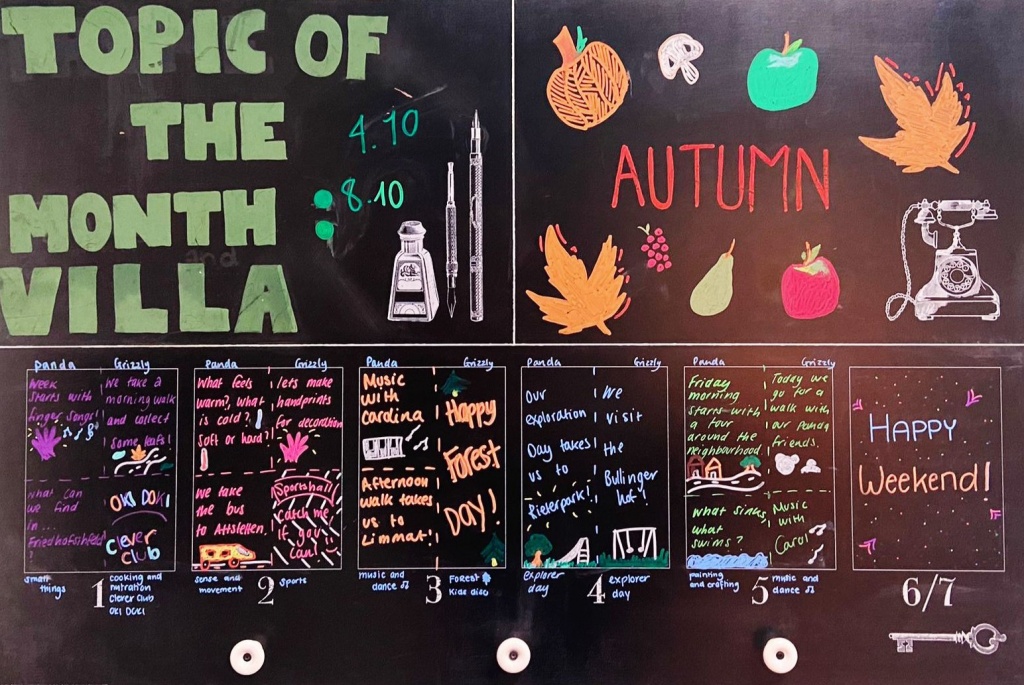 TOPIC OF
THE
MONTH
and
VILLA
4.10
8.10
AUTUMN
Panda
Grizzly
Week
starts with
finger songs!
We take a
morning walk
and collect
some leafs!
what can
we find
in...
Friedhofsfeld?
OKI DOKI
clever
club
small
things
1
cooking and
nutration
Clever Club
OKI DOKI
Panda
Grizzly
What feels
warm?, what
is cold?
Soft or hard?
lets make
handprints
for decoration
We take
the bus
to Attstetten.
Sportshall
Catch me
if you
can!
sense and
movement
2
sports
Panda
Grizzly
Music
with
Carolina
Afternoon
walk takes
us to
Limmat!
Happy
Forest
DAY!
music and
dance
3
FOREST
Kids disco
Panda
Grizzly
Our
exploration
Day takes
us to
We
visit
the
Bullinger
hof!
explorer
day
4
explorer
day
Panda
Grizzly
Friday
morning
starts with
a tour
around the
neighbourhood
Today we
go for a
walk with
our Panda
friends.
What sinks,
what
swims?
Music
with
Carol
painting
and crafting
5
music and
dance
HAPPY
Weekend!
6/7